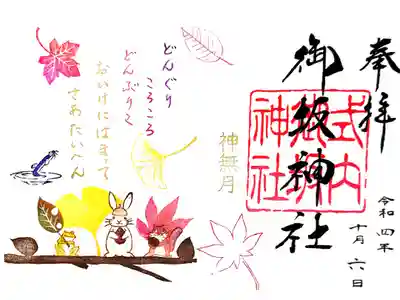 奉拝
御坂神社
式内
神社
令和四年
十月六日
神無月
どんぐり
ころころ
どんぶりこ
おいけにはまって
さあたいへん